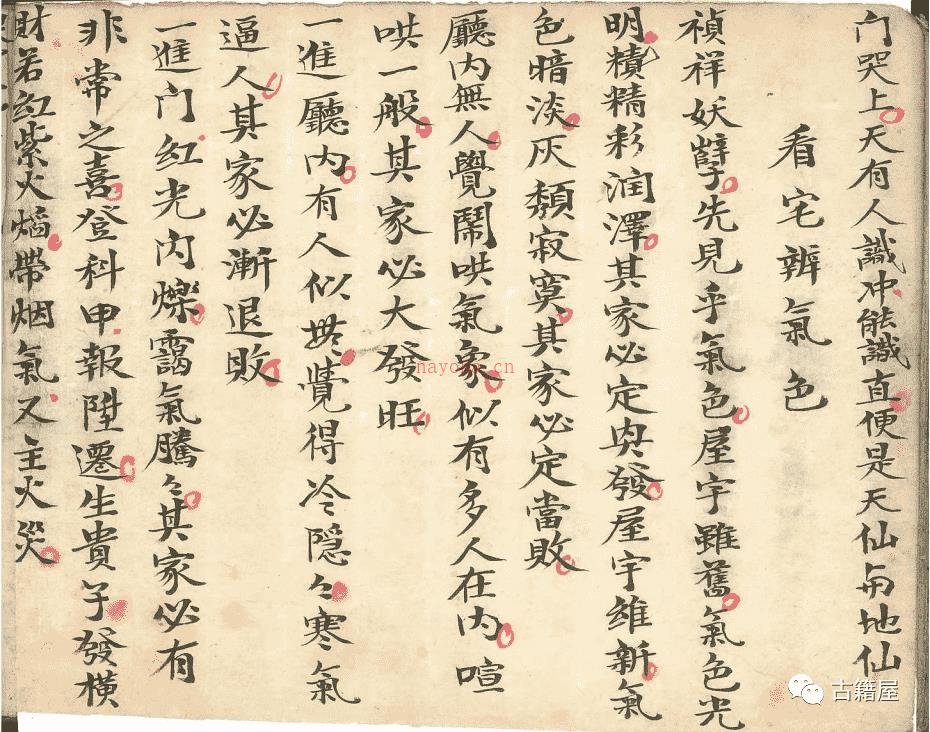 门哭上天有人識冲能識直便是天仙与地仙
看宅辨氣色
禎祥妖孽先見乎氣色屋宇雖舊氣色光
明精彩润澤其家必定興發屋宇維新氣
色暗淡灰頽寂寞其家必定當敗
廳内無人覺鬧哄氣象似有多人在内喧
哄一般其家必大發旺
一進廳内有人似無覺得冷隐々寒氣
逼人其家必漸退敗
一進门红光内爍靄氣騰々其家必有
非常之喜登科甲報陞遷生貴子發横
財若红紫火焰帶烟氣又主火災
nayona.cn
古籍屋